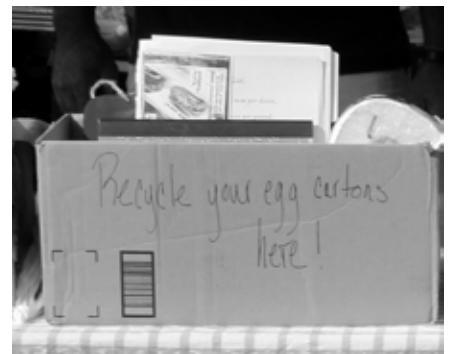 Recycle your egg cartons
here!